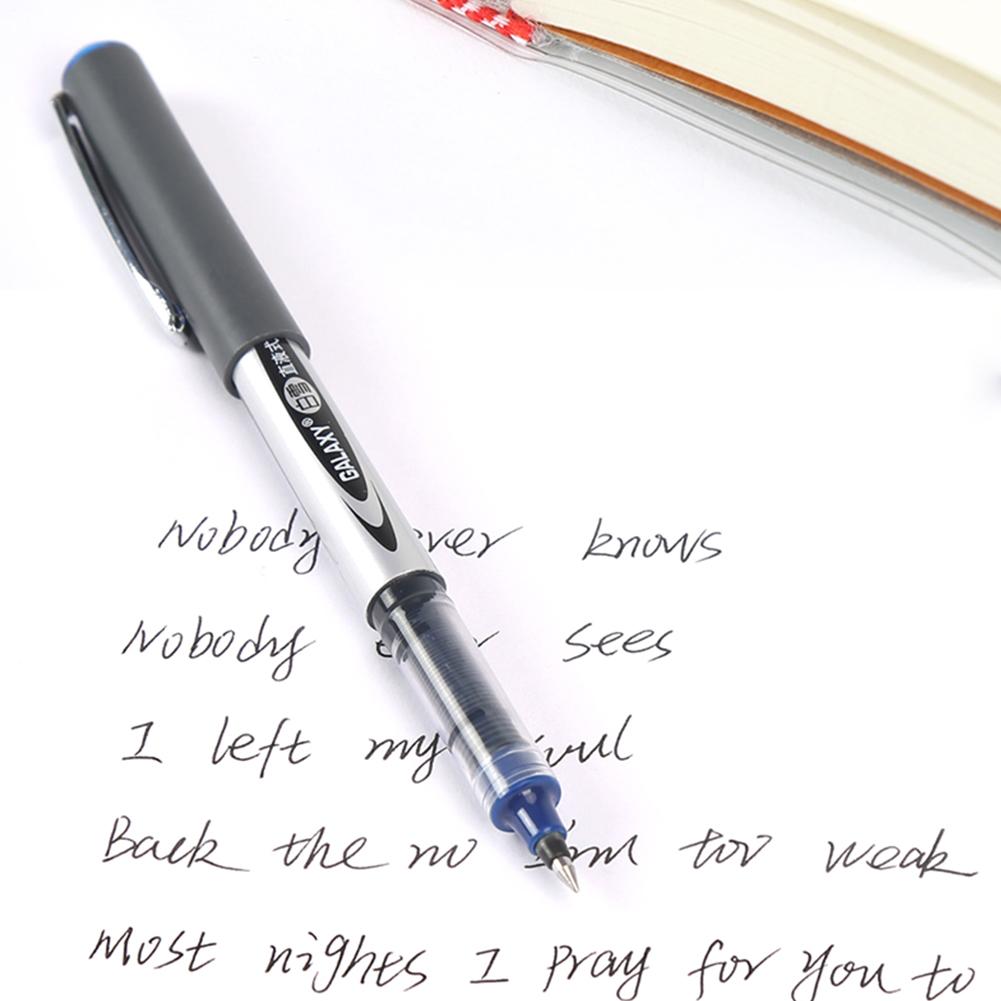 直液式
GALAXY®
Nobody ever knows
Nobody sees
I left my
Back the no tov weak
Most nighes I Pray for you to